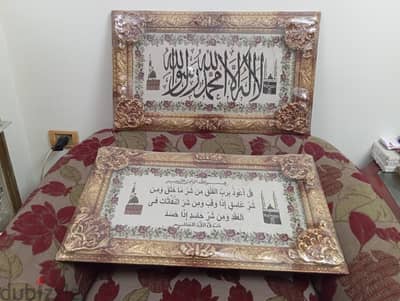 لا إله إلا الله محمد رسول الله
قل أعوذ برب الفلق من شر ما خلق ومن
شر غاسق إذا وقب ومن شر النفاثات في
العقد ومن شر حاسد إذا حسد
صدق الله العظيم
dubizzle